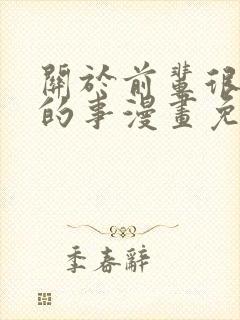 關於前輩很
的事漫畫免
季春辭